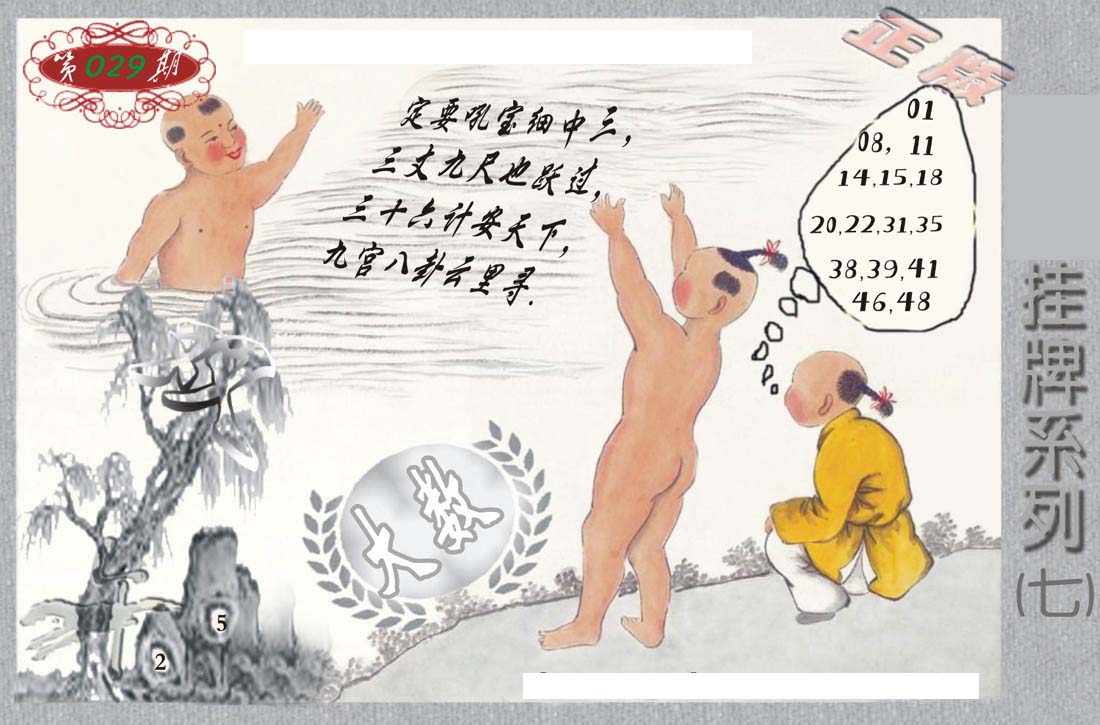 第029期
正版
定要吼宝细中三，
三丈九尺也跃过，
三十六计安天下，
九宫八卦云里寻.
01
08, 11
14,15,18
20,22,31,35
38,39,41
46,48
挂牌系列(七)
大数
5
2